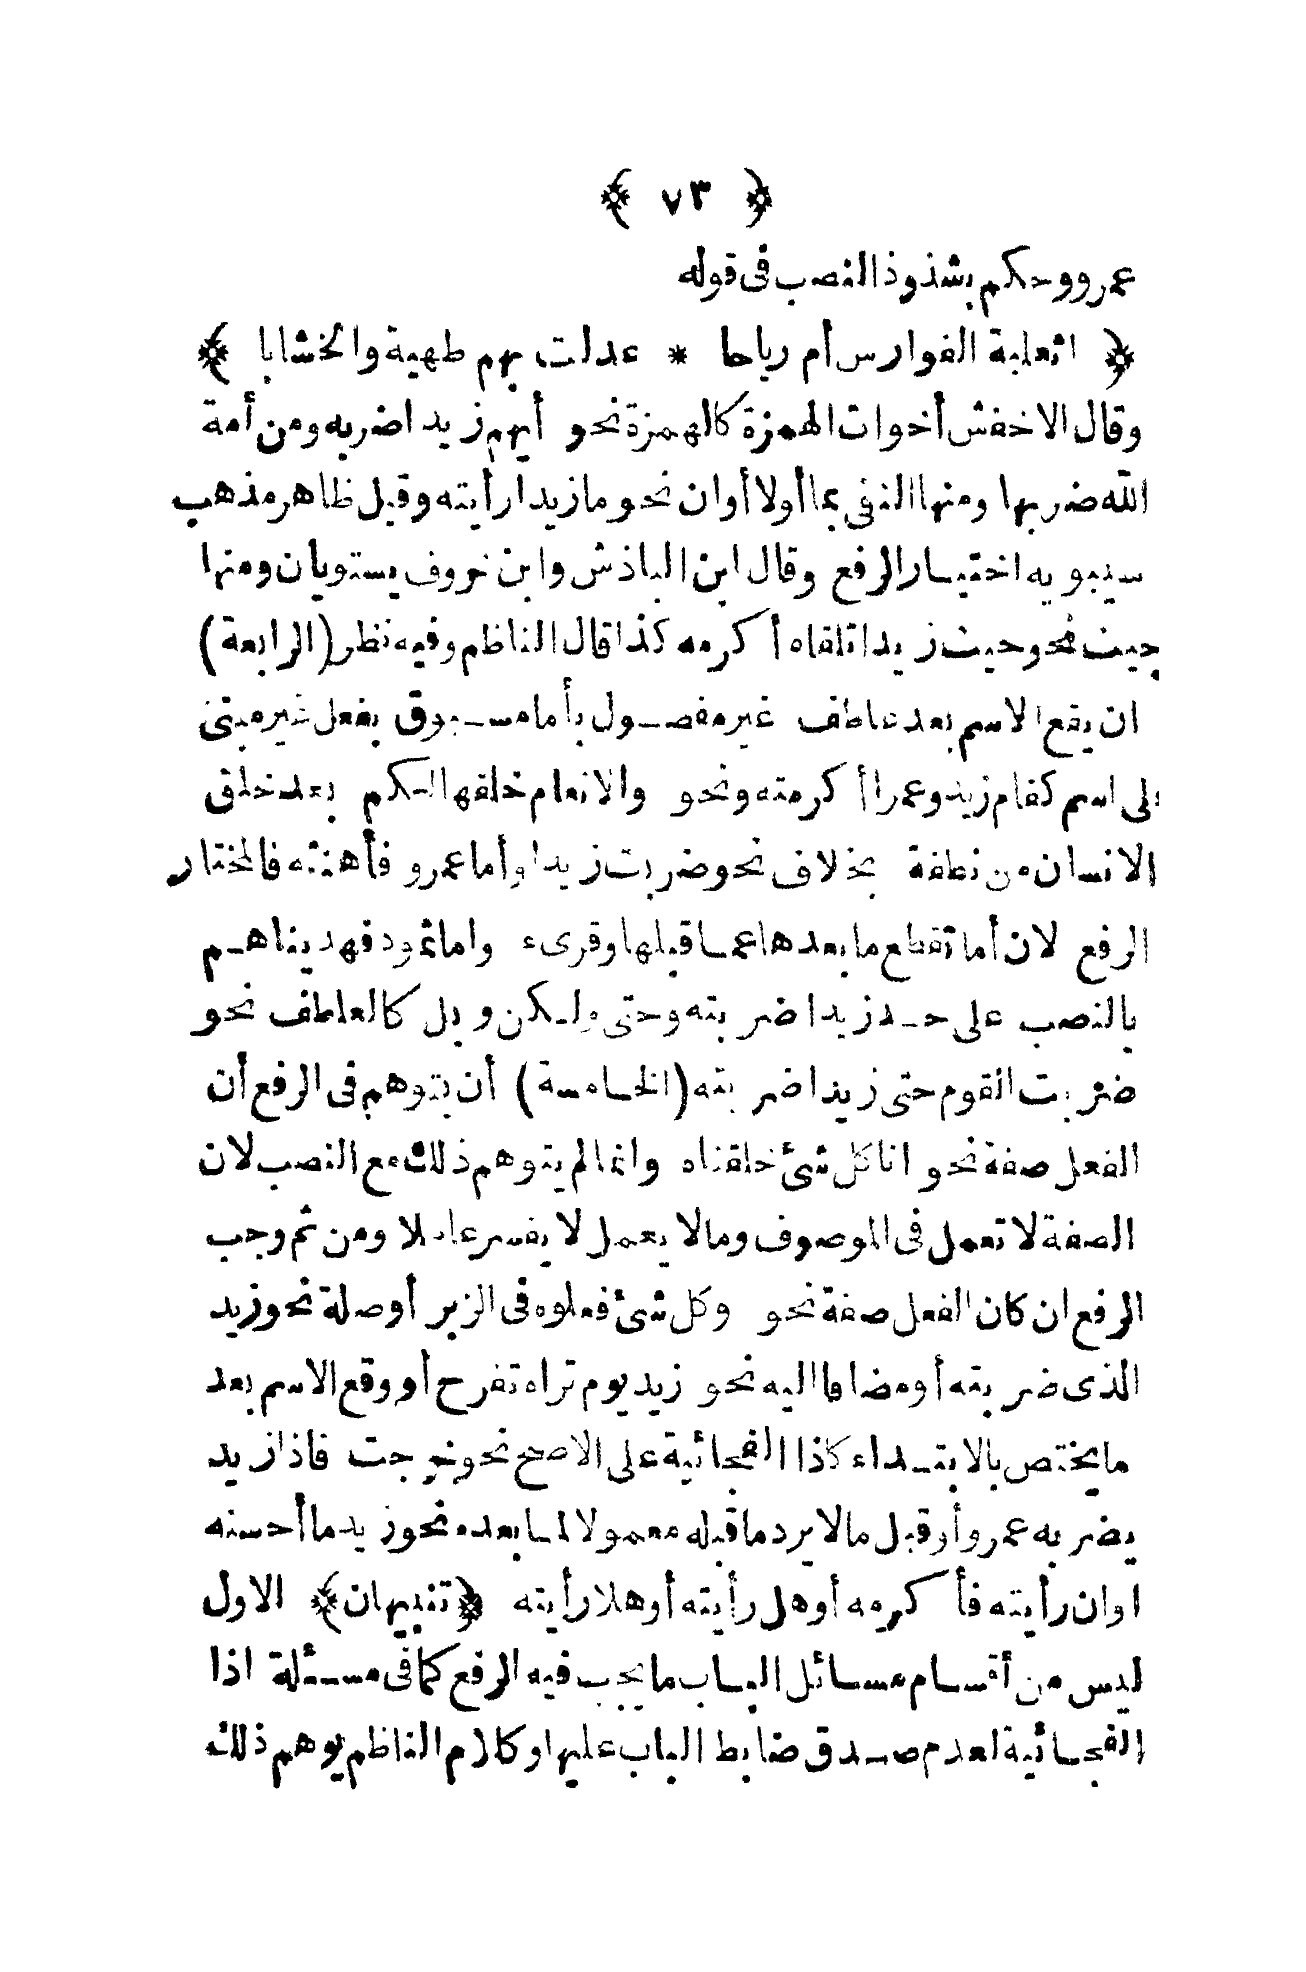 ﴿ ٧٣ ﴾
عمرو وحكم بشذوذ النصب فى قوله
﴿ اثعلبة الفوارس أم رياحا * عدلت بهم طهية والخشابا ﴾
وقال الاخفش أخوات الهمزة كالهمزة نحو أيهم زيدا ضربه ومن أمة
الله ضربها ومنها النفى بما أولا أوان نحو ما زيدا رأيته وقيل ظاهر مذهب
سيبويه اختيار الرفع وقال ابن الباذش وابن خروف يستويان ومنها
حيث نحو حيث زيدا تلقاه أكرمه كذا قال الناظم وفيه نظر (الرابعة)
ان يقع الاسم بعد عاطف غير مفصول بأما مسبوق بفعل غير مبنى
على اسم كقام زيد وعمرا أكرمته ونحو والانعام خلقها لكم بعد خلق
الانسان من نطفة بخلاف نحو ضربت زيدا وأما عمرو فأهنته فالمختار
الرفع لان أما تقطع ما بعدها عما قبلها وقرىء واما ثمود فهديناهم
بالنصب على حد زيدا ضربته وحتى ولكن وبل كالعاطف نحو
ضربت القوم حتى زيدا ضربته (الخامسة) أن يتوهم فى الرفع أن
الفعل صفة نحو انا كل شئ خلقناه وانما لم يتوهم ذلك مع النصب لان
الصفة لا تعمل فى الموصوف وما لا يعمل لا يفسر عاملا ومن ثم وجب
الرفع ان كان الفعل صفة نحو وكل شئ فعلوه فى الزبر أو صلة نحو زيد
الذى ضربته أو مضافا اليه نحو زيد يوم تراه تفرح أو وقع الاسم بعد
ما يختص بالابتداء كاذا الفجائية على الاصح نحو خرجت فاذا زيد
يضربه عمرو أو قبل ما لا يرد ما قبله معمولا لما بعده نحو زيد ما أحسنه
اوان رأيته فأكرمه أو هل رأيته أو هلا رأيته ﴿تنبيهان﴾ الاول
ليس من أقسام مسائل الباب ما يجب فيه الرفع كما فى مسئلة اذا
الفجائية لعدم صدق ضابط الباب عليها وكلام الناظم يوهم ذلك